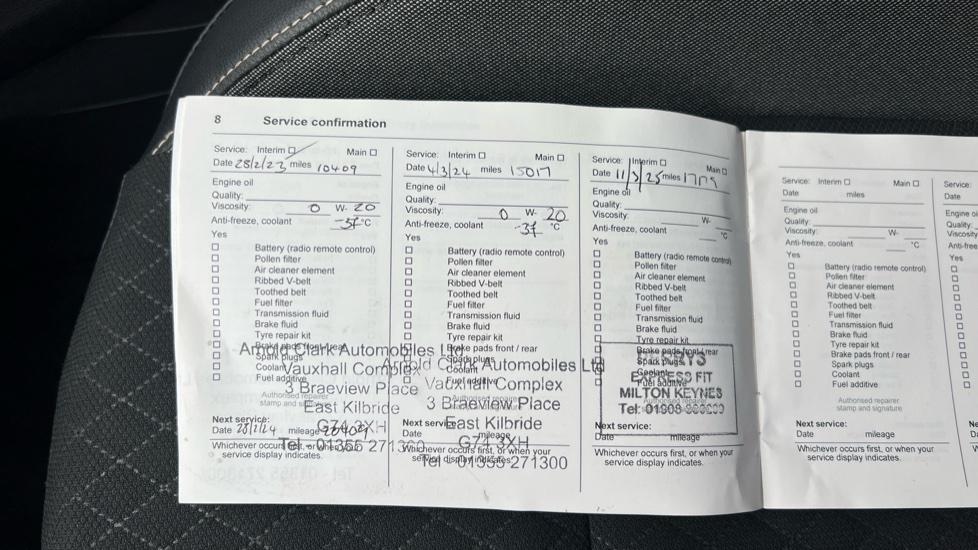 8 Service confirmation
Service: Interim Main
Date 28/2/23 miles 10409
Engine oil
Quality:
Viscosity: 0 W- 20
Anti-freeze, coolant -37 °C
Yes
Battery (radio remote control)
Pollen filter
Air cleaner element
Ribbed V-belt
Toothed belt
Fuel filter
Transmission fluid
Brake fluid
Tyre repair kit
Brake pads front / rear
Spark plugs
Coolant
Fuel additive
Authorised repairer
stamp and signature
Arnold Clark Automobiles Ltd
Vauxhall Complex
3 Braeview Place
East Kilbride
G74 3XH
Tel - 01355 271300
Next service:
Date 28/2/24 mileage
Whichever occurs first, or when your
service display indicates.
Service: Interim Main
Date 4/3/24 miles 15017
Engine oil
Quality:
Viscosity: 0 W- 20
Anti-freeze, coolant -37 °C
Yes
Battery (radio remote control)
Pollen filter
Air cleaner element
Ribbed V-belt
Toothed belt
Fuel filter
Transmission fluid
Brake fluid
Tyre repair kit
Brake pads front / rear
Spark plugs
Coolant
Fuel additive
Arnold Clark Automobiles Ltd
Vauxhall Complex
3 Braeview Place
East Kilbride
G74 3XH
Tel - 01355 271300
Next service:
Date mileage
Whichever occurs first, or when your
service display indicates.
Service: Interim Main
Date 11/3/25 miles
Engine oil
Quality:
Viscosity: W-
Anti-freeze, coolant °C
Yes
Battery (radio remote control)
Pollen filter
Air cleaner element
Ribbed V-belt
Toothed belt
Fuel filter
Transmission fluid
Brake fluid
Tyre repair kit
Brake pads front / rear
Spark plugs
Coolant
Fuel additive
EXPRESS FIT
MILTON KEYNES
Tel: 01908
Next service:
Date mileage
Whichever occurs first, or when your
service display indicates.
Service: Interim Main
Date miles
Engine oil
Quality:
Viscosity: W-
Anti-freeze, coolant °C
Yes
Battery (radio remote control)
Pollen filter
Air cleaner element
Ribbed V-belt
Toothed belt
Fuel filter
Transmission fluid
Brake fluid
Tyre repair kit
Brake pads front / rear
Spark plugs
Coolant
Fuel additive
Authorised repairer
stamp and signature
Next service:
Date mileage
Whichever occurs first, or when your
service display indicates.
Service:
Date
Engine
Quality:
Viscosity
Yes